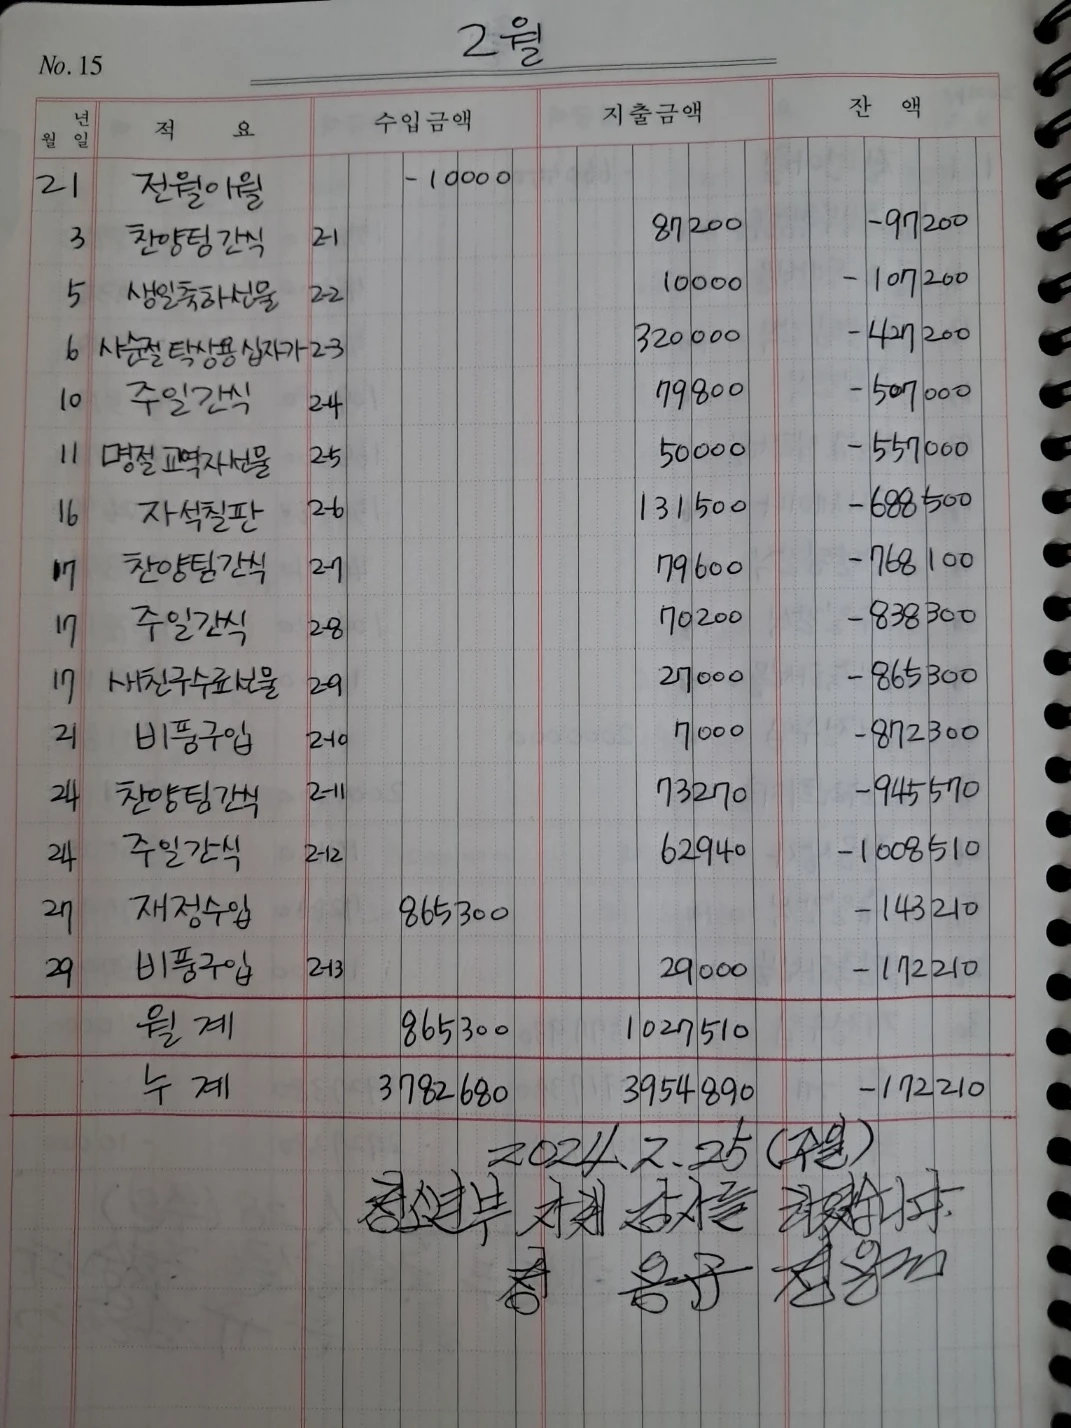 2월
No. 15
년 월 일 적 요 수입금액 지출금액 잔 액
2 1 전월이월 -10000
3 찬양팀간식 2-1 87200 -97200
5 생일축하선물 2-2 10000 -107200
6 사순절탁상용십자가 2-3 320000 -427200
10 주일간식 2-4 79800 -507000
11 명절교역자선물 2-5 50000 -557000
16 자석칠판 2-6 131500 -688500
17 찬양팀간식 2-7 79600 -768100
17 주일간식 2-8 70200 -838300
17 새친구수료선물 2-9 27000 -865300
21 비품구입 2-10 7000 -872300
24 찬양팀간식 2-11 73270 -945570
24 주일간식 2-12 62940 -1008510
27 재정수입 865300 -143210
29 비품구입 2-13 29000 -172210
월 계 865300 1027510
누 계 3782680 3954890 -172210
2024. 2. 25 (주일)
청소년부 자체 감사를 하였습니다.